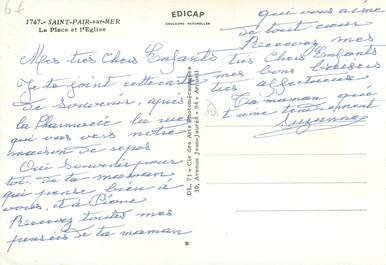 67
1747. - SAINT-PAIR-sur-MER
La Place et l'Eglise
EDICAP
COULEURS NATURELLES
Mes très Chers Enfants
Je te joint cette carte
de souvenir, après
la Pharmacie la rue
qui vas vers notre
maison de repos
Oui souvenir pour
toi, de ta maman
qui pense bien à
vous, et à Pierre
Recevez toutes mes
pensées de ta maman
DL. 71 - Cie des Arts Photomécaniques
50, Avenue Jean-Jaurès - 94 - Arcueil
qui vous aime
de tout cœur
Recevez mes
très Chers Enfants
mes bons baisers
très affectueux
Ta maman qui
t'aime tendrement
Suzanne